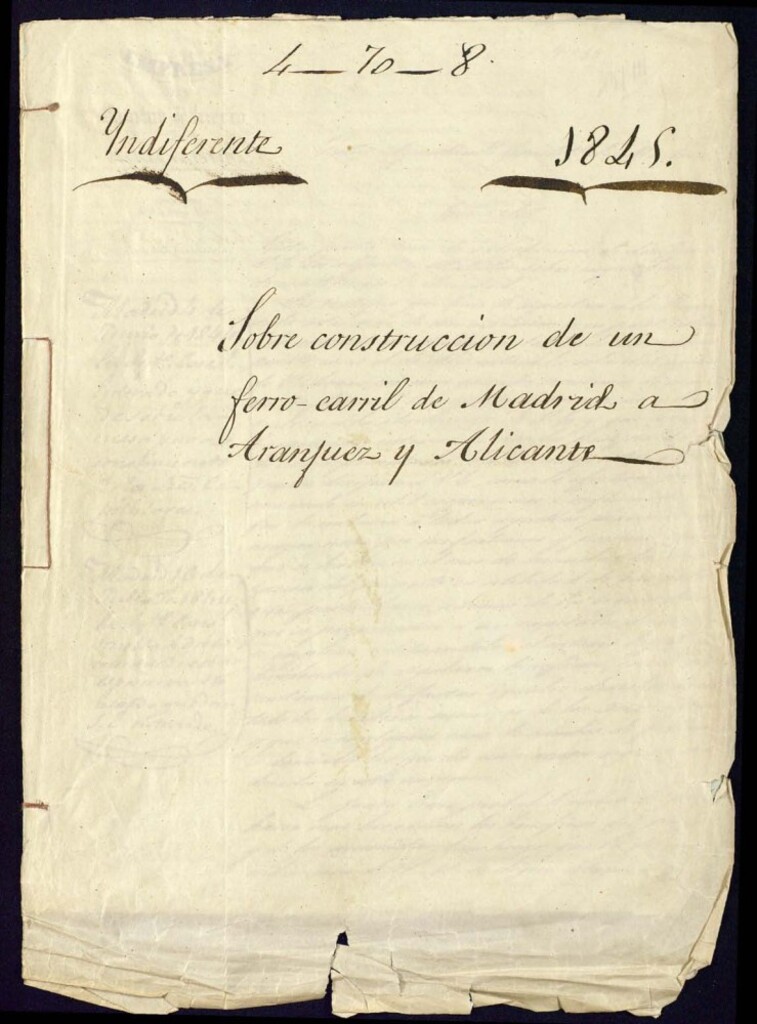 4 — 70 — 8.
Yndiferente
1845.
Sobre construccion de un
ferro-carril de Madrid a
Aranjuez y Alicante